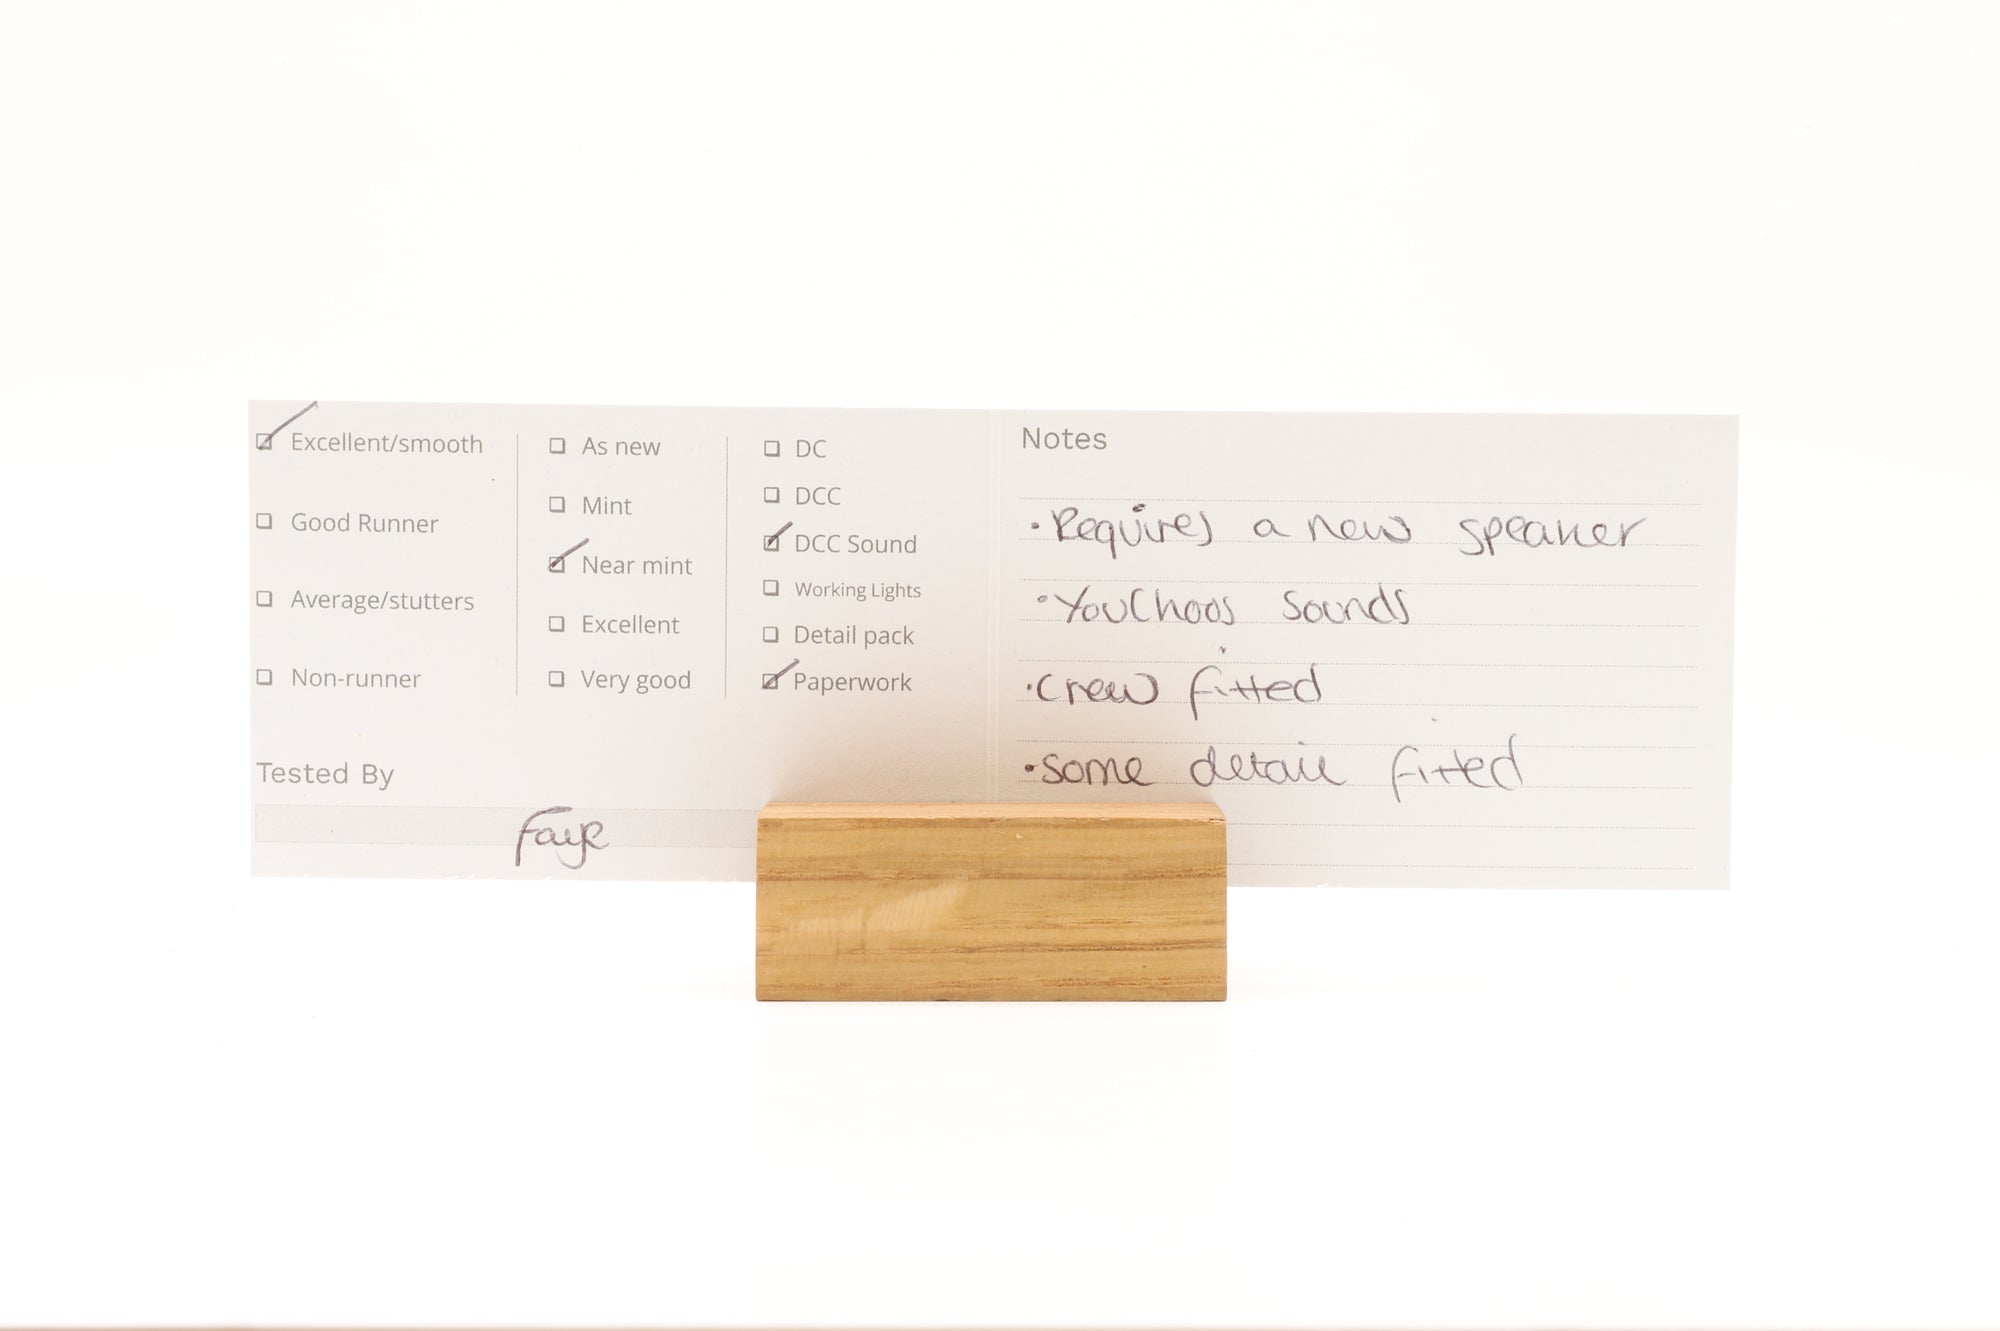 Excellent/smooth
Good Runner
Average/stutters
Non-runner
As new
Mint
Near mint
Excellent
Very good
DC
DCC
DCC Sound
Working Lights
Detail pack
Paperwork
Tested By
Faye
Notes
•Requires a new speaker
•YouChoos Sounds
•Crew fitted
•some detail fitted